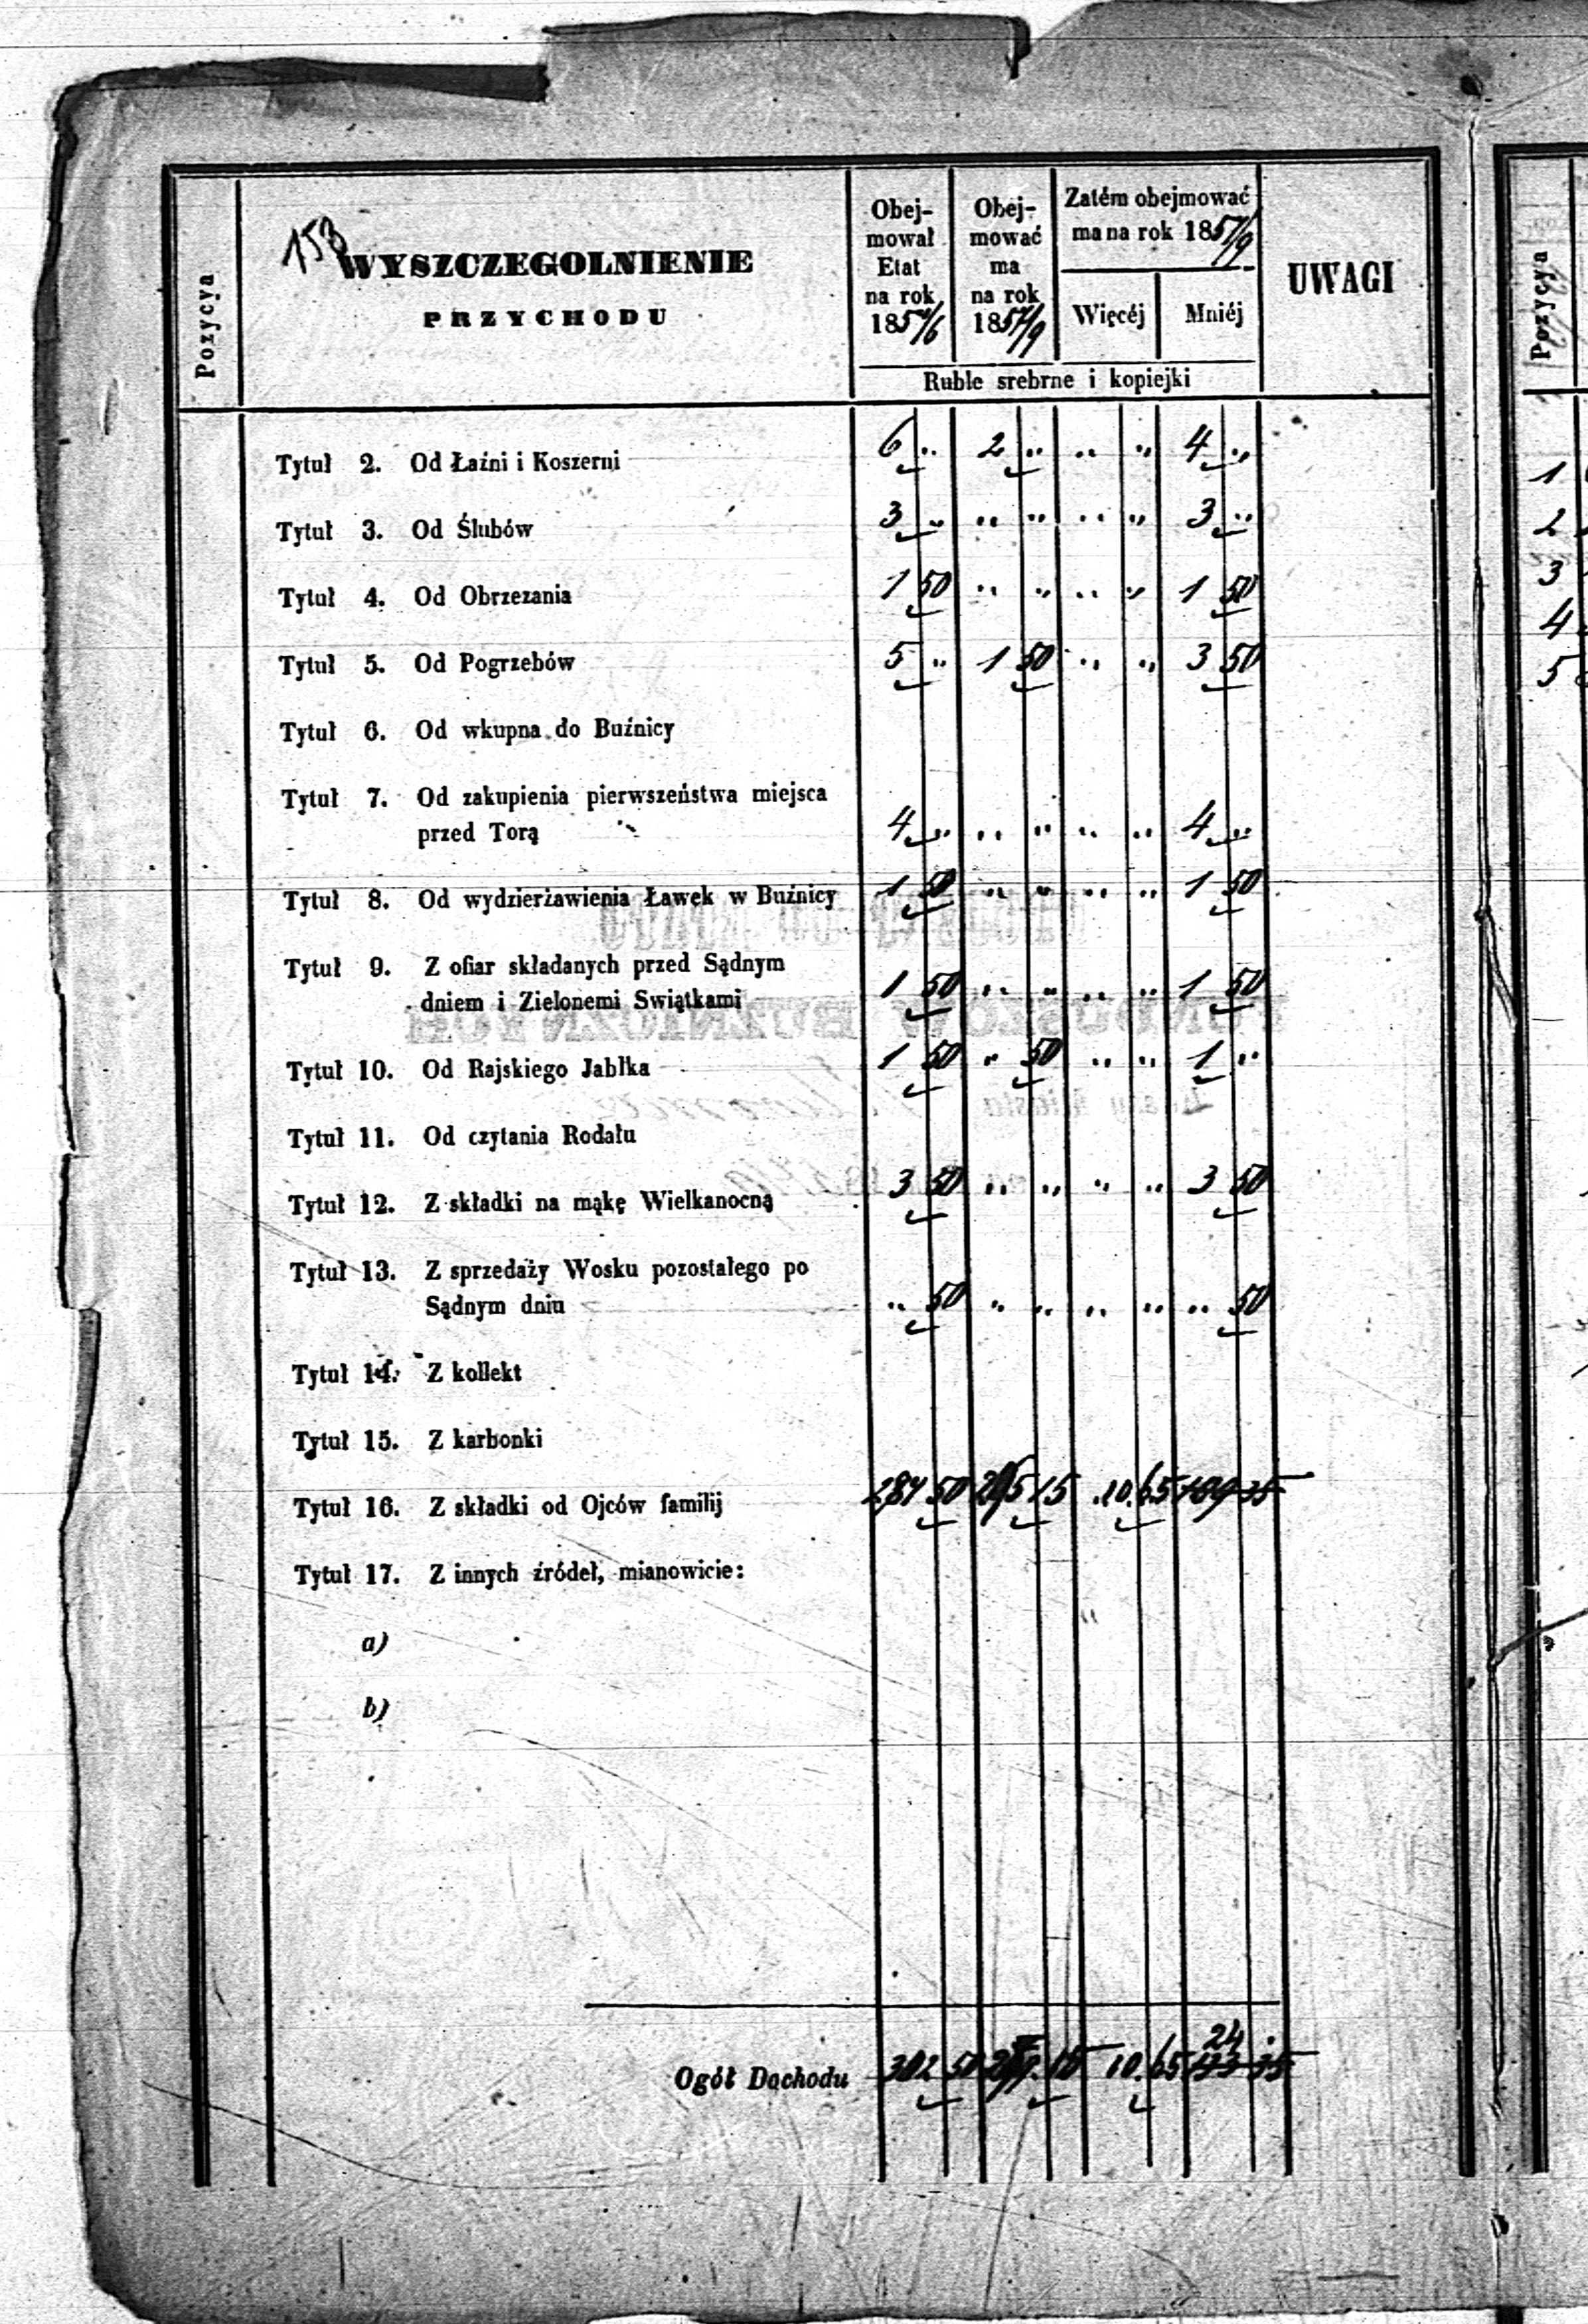 153
Pozycya
WYSZCZEGOLNIENIE
PRZYCHODU
Obej-
mował
Etat
na rok
185 4/6
Obej-
mować
ma
na rok
185 7/9
Zatém obejmować
ma na rok 185 7/9
Więcéj Mniéj
Ruble srebrne i kopiejki
UWAGI
Tytuł 2. Od Łaźni i Koszerni 6 „ 2 „ „ „ 4 „
Tytuł 3. Od Ślubów 3 „ „ „ „ „ 3 „
Tytuł 4. Od Obrzezania 1 50 „ „ „ „ 1 50
Tytuł 5. Od Pogrzebów 5 „ 1 50 „ „ 3 50
Tytuł 6. Od wkupna do Buźnicy
Tytuł 7. Od zakupienia pierwszeństwa miejsca
przed Torą 4 „ „ „ „ „ 4 „
Tytuł 8. Od wydzierżawienia Ławek w Buźnicy 1 50 „ „ „ „ 1 50
Tytuł 9. Z ofiar składanych przed Sądnym
dniem i Zielonemi Swiątkami 1 50 „ „ „ „ 1 50
Tytuł 10. Od Rajskiego Jabłka 1 50 „ 50 „ „ 1 „
Tytuł 11. Od czytania Rodału
Tytuł 12. Z składki na mąkę Wielkanocną 3 50 „ „ „ „ 3 50
Tytuł 13. Z sprzedaży Wosku pozostałego po
Sądnym dniu „ 50 „ „ „ „ „ 50
Tytuł 14. Z kollekt
Tytuł 15. Z karbonki
Tytuł 16. Z składki od Ojców familij 50 15 10 65
Tytuł 17. Z innych źródeł, mianowicie:
a)
b)
24
Ogół Dochodu 50 10 65
Pozycya
1
2
3
4
5